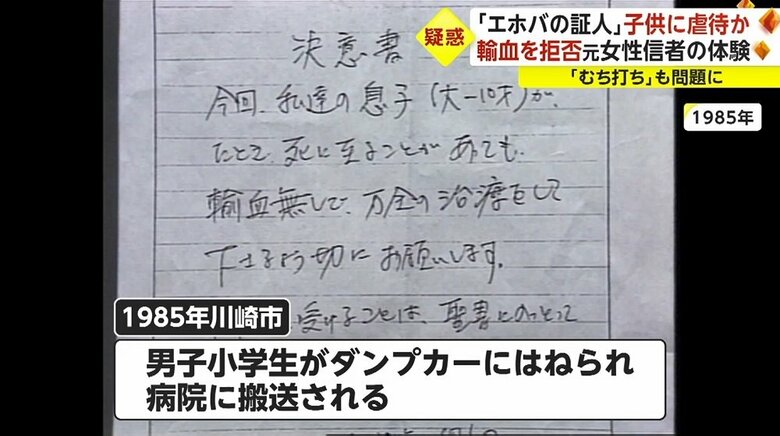 「エホバの証人」子供に虐待か
疑惑
輸血を拒否元女性信者の体験
「むち打ち」も問題に
1985年
決意書
今回、私達の息子(大一10才)が、
たとえ死に至ることがあっても、
輸血無しで、万全の治療をして
下さるよう切にお願いします。
受けることは、聖書にのっとって
1985年川崎市
男子小学生がダンプカーにはねられ
病院に搬送される